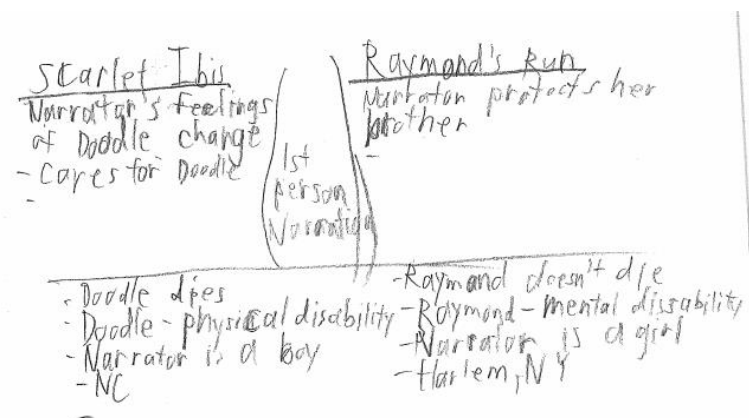 Scarlet Ibis
Narrator's feelings
of Doodle change
- Cares for Doodle
-
1st
person
Narration
Raymond's Run
Narrator protects her
brother
-
- Doodle dies
- Doodle - physical disability
- Narrator is a boy
- NC
- Raymand doesn't die
- Raymond - mental dissability
- Narrator is a girl
- Harlem, NY